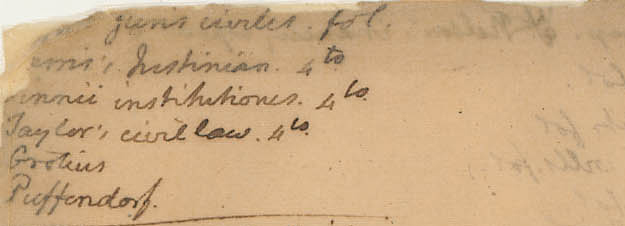 juris civilis. fol.
arris's Justinian. 4to
innii institutiones. 4to.
Taylor's civil law. 4to.
Grotius
Puffendorf.